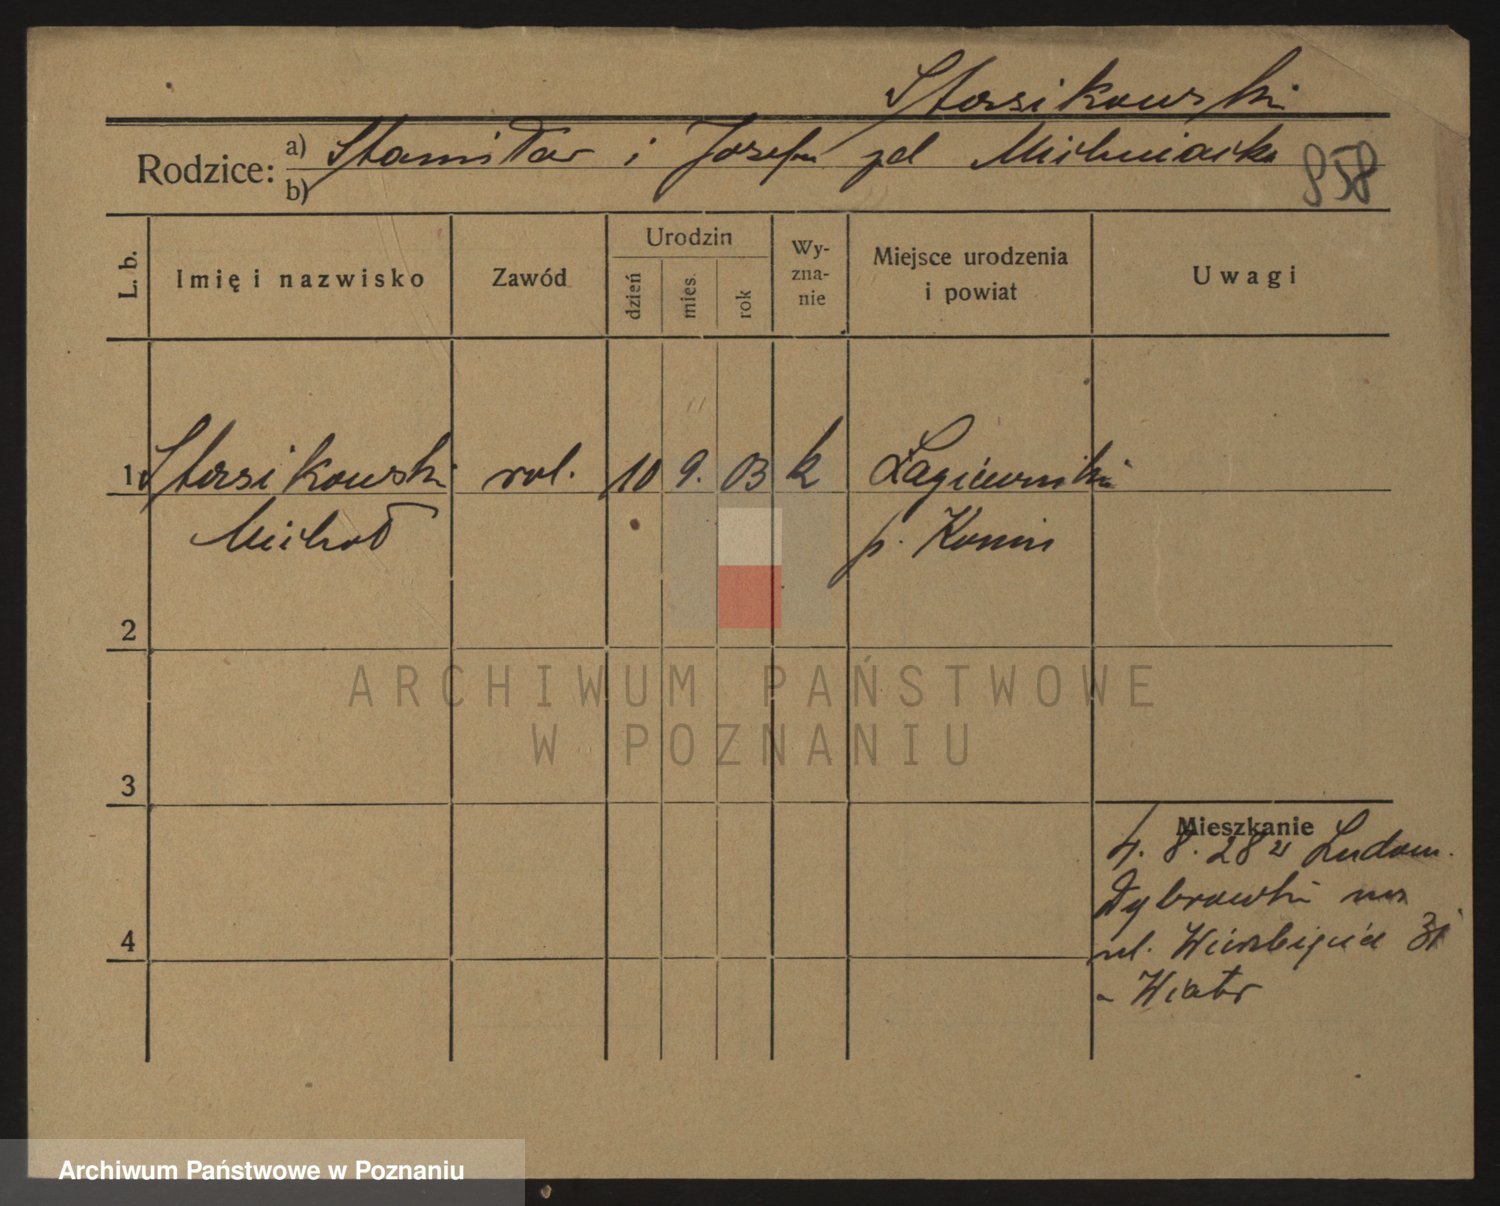 Stersikowski
Rodzice: a) Stanisław i Józefa zd Michniacka
b)
858
L. b.
Imię i nazwisko
Zawód
Urodzin
dzień
mies.
rok
Wy-
zna-
nie
Miejsce urodzenia
i powiat
Uwagi
1 Stersikowski rol. 10 9. 03 k Łagiewniki
Michał p. Konin
2
3
4
Mieszkanie
4. 8. 28 Ludom.
Dąbrówki
ul. Wierzbięcice 31
Wiatr
ARCHIWUM PAŃSTWOWE
W POZNANIU
Archiwum Państwowe w Poznaniu